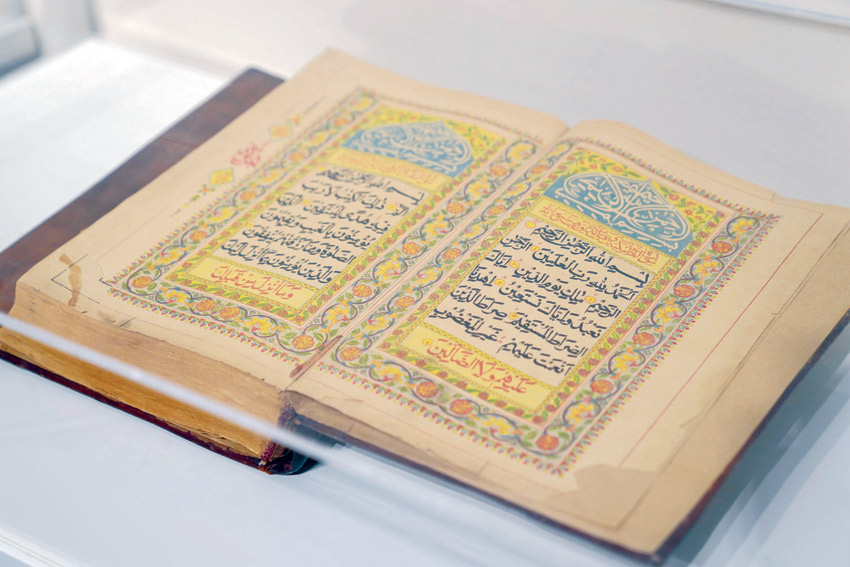 بسم الله الرحمن الرحيم
الحمد لله رب العلمين الرحمن
الرحيم ملك يوم الدين اياك
نعبد واياك نستعين اهدنا
الصراط المستقيم صراط الذين
انعمت عليهم غير المغضوب
عليهم ولا الضالين
بسم الله الرحمن الرحيم
الم ذلك الكتب لا ريب
فيه هدى للمتقين الذين
يؤمنون بالغيب ويقيمون
الصلوة ومما رزقنهم ينفقون
والذين يؤمنون بما انزل اليك
وما انزل من قبلك